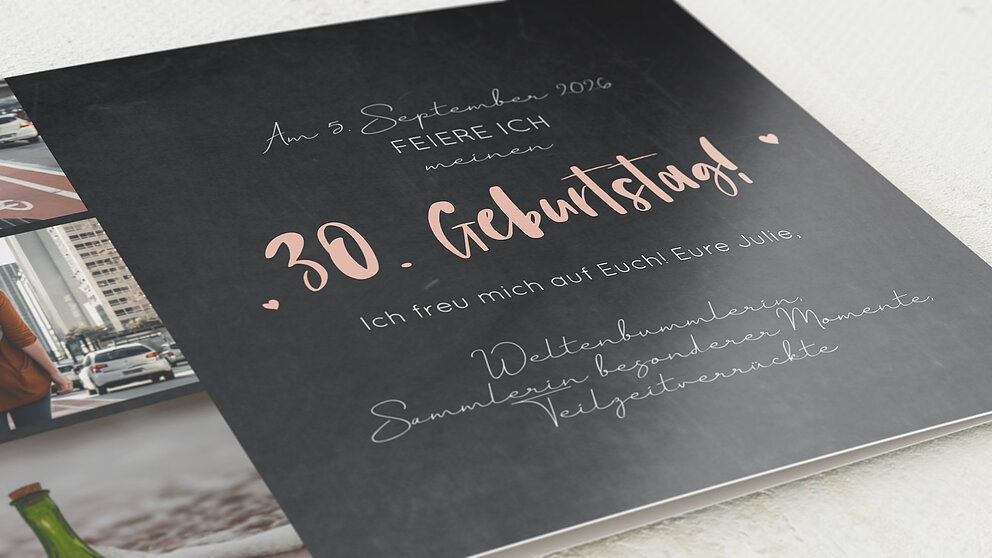 Am 5. September 2026
FEIERE ICH
meinen
30. Geburtstag!
Ich freu mich auf Euch! Eure Julie,
Weltenbummlerin,
Sammlerin besonderer Momente,
Teilzeitverrückte